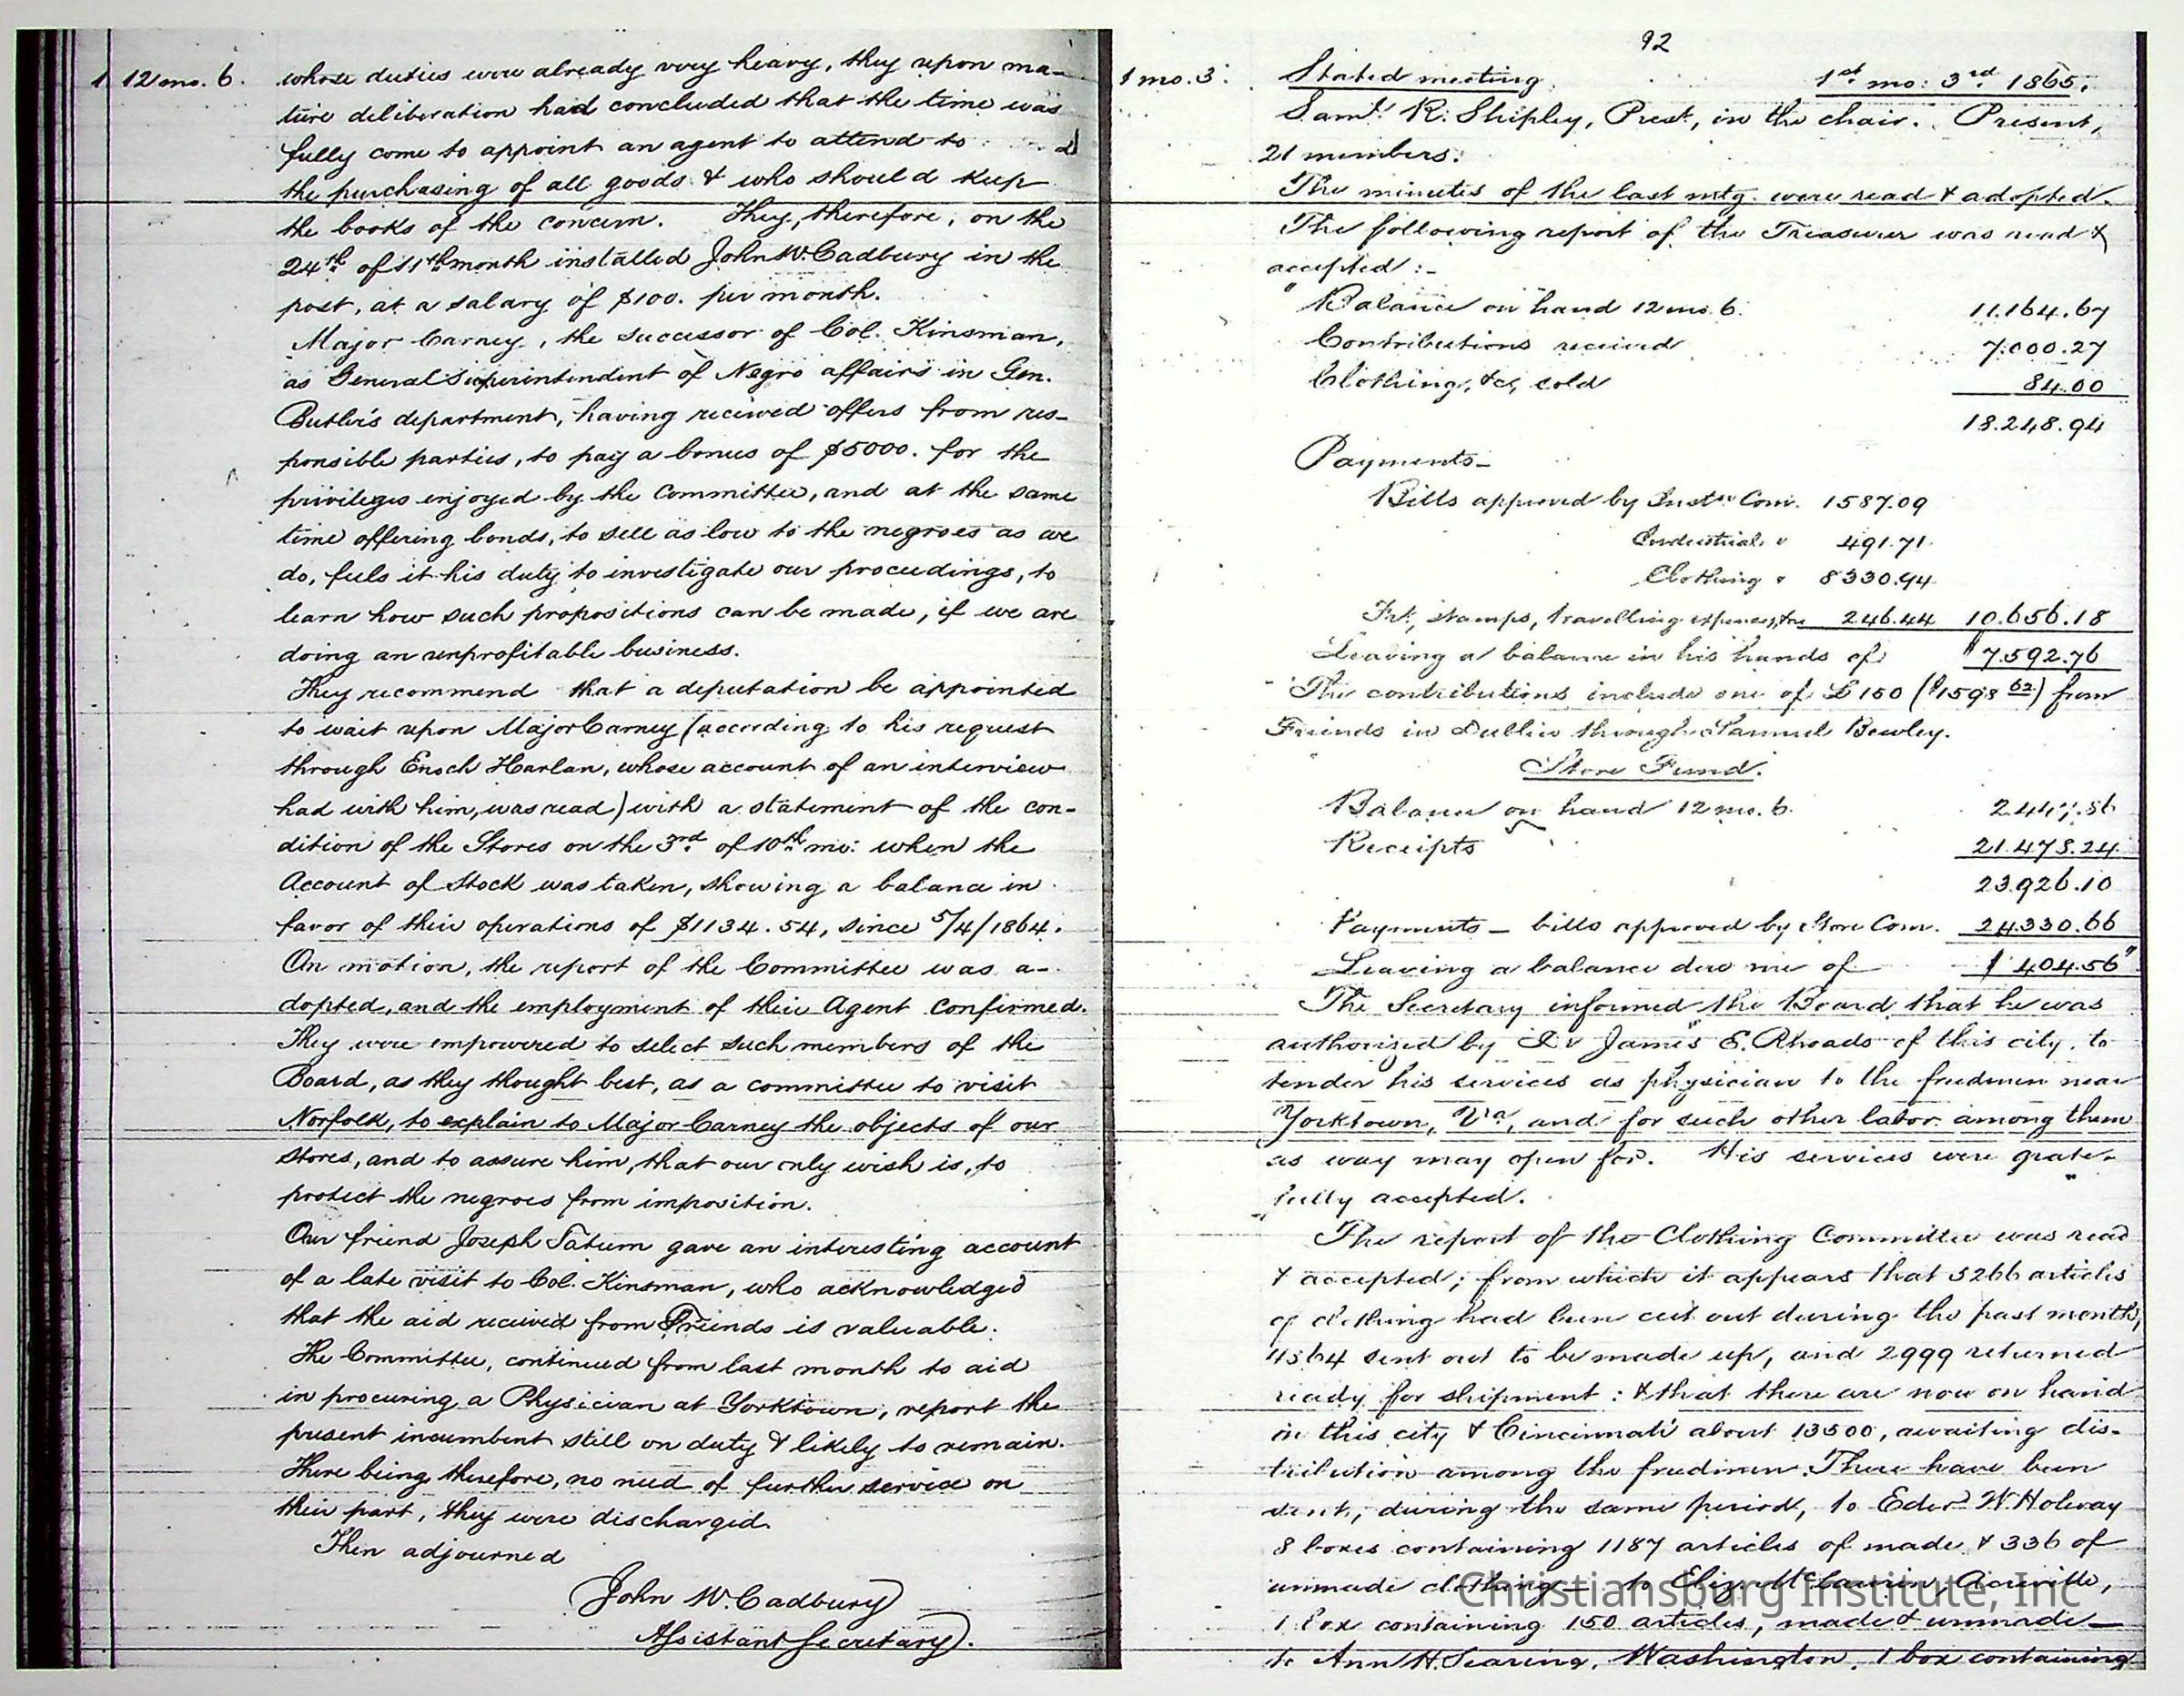 1 12 mo. 6.
whose duties were already very heavy, they upon ma-
ture deliberation had concluded that the time was
fully come to appoint an agent to attend to
the purchasing of all goods & who should keep
the books of the concern. They, therefore, on the
24th of 11th month installed John W. Cadbury in the
post, at a salary of $100. per month.
Major Carney, the successor of Col. Kinsman,
as General Superintendent of Negro affairs in Gen.
Butler's department, having received offers from res-
ponsible parties, to pay a bonus of $5000. for the
privileges enjoyed by the Committee, and at the same
time offering bonds, to sell as low to the negroes as we
do, feels it his duty to investigate our proceedings, to
learn how such propositions can be made, if we are
doing an unprofitable business.
They recommend that a deputation be appointed
to wait upon Major Carney (according to his request
through Enoch Harlan, whose account of an interview
had with him, was read) with a statement of the con-
dition of the Stores on the 3rd of 10th mo: when the
Account of Stock was taken, showing a balance in
favor of their operations of $1134.54, since 5/4/1864.
On motion, the report of the Committee was a-
dopted, and the employment of their Agent confirmed.
They were empowered to select such members of the
Board, as they thought best, as a committee to visit
Norfolk, to explain to Major Carney the objects of our
Stores, and to assure him, that our only wish is, to
protect the negroes from imposition.
Our friend Joseph Tatum gave an interesting account
of a late visit to Col. Kinsman, who acknowledged
that the aid received from Friends is valuable.
The Committee, continued from last month to aid
in procuring a Physician at Yorktown, report the
present incumbent still on duty & likely to remain.
There being therefore, no need of further service on
their part, they were discharged.
Then adjourned
John W. Cadbury
Assistant Secretary.
92
1 mo. 3.
Stated meeting 1st mo: 3rd 1865.
Saml. R. Shipley, Prest, in the chair. Present,
21 members.
The minutes of the last mtg. were read & adopted.
The following report of the Treasurer was read &
accepted :-
"Balance on hand 12 mo. 6. 11.164.67
Contributions received 7.000.27
Clothing, &c, sold 84.00
18.248.94
Payments-
Bills approved by Instn Com. 1587.09
Industrial " 491.71
Clothing " 8330.94
Frt, stamps, travelling expenses, &c 246.44 10.656.18
Leaving a balance in his hands of $7.592.76
The contributions include one of £150 ($1598 62) from
Friends in Dublin through Samuel Bewley.
Store Fund.
Balance on hand 12 mo. 6. 2447.86
Receipts 21.478.24
23.926.10
Payments - bills approved by Store Com. 24.330.66
Leaving a balance due me of $404.56"
The Secretary informed the Board that he was
authorized by Dr James E. Rhoads of this city, to
tender his services as physician to the freedmen near
Yorktown, Va, and for such other labor among them
as way may open for. His services were grate-
fully accepted.
The report of the Clothing Committee was read
& accepted; from which it appears that 5266 articles
of clothing had been cut out during the past month,
4564 sent out to be made up, and 2999 returned
ready for shipment: & that there are now on hand
in this city & Cincinnati about 13500, awaiting dis-
tribution among the freedmen. There have been
sent, during the same period, to Eder W. Holway
8 boxes containing 1187 articles of made & 336 of
unmade clothing - to Eliz.
1 box containing 150 articles, made & unmade -
to Ann H. Searing, Washington, 1 box containing
Christiansburg Institute, Inc